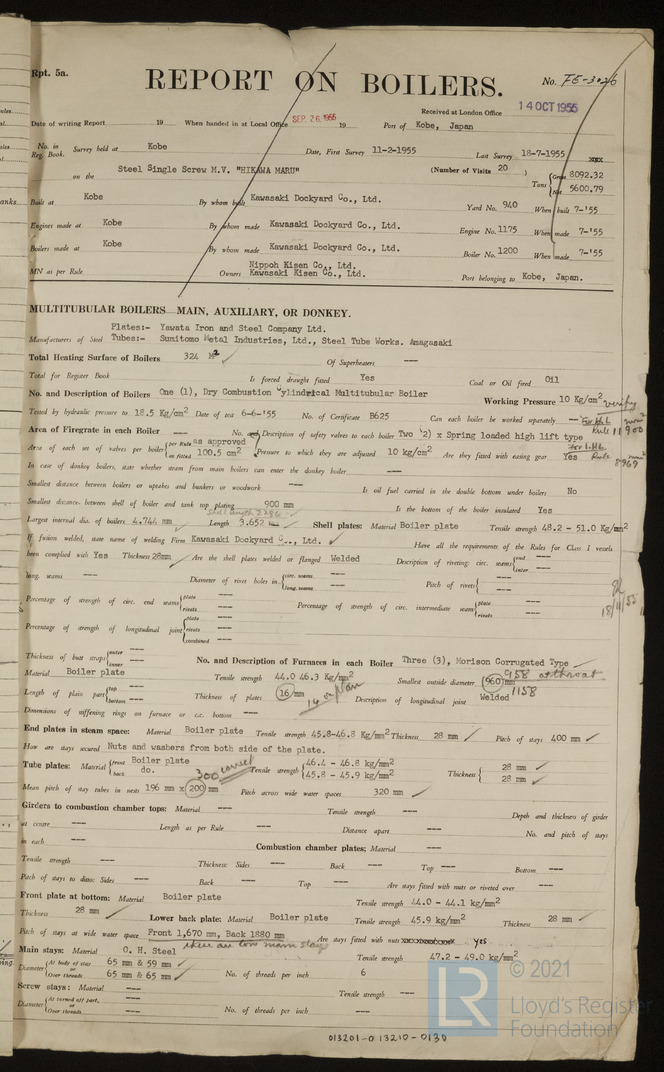 Rpt. 5a.
REPORT ON BOILERS.
No. FE-3026
Received at London Office
14 OCT 1955
Date of writing Report 19 When handed in at Local Office SEP. 26. 1955 19 Port of Kobe, Japan
No. in Reg. Book. Survey held at Kobe Date, First Survey 11-2-1955 Last Survey 18-7-1955
on the Steel Single Screw M.V. "HIKAWA MARU" (Number of Visits 20 ) Tons { Gross 8092.32
Net 5600.79
Built at Kobe By whom built Kawasaki Dockyard Co., Ltd. Yard No. 940 When built 7-'55
Engines made at Kobe By whom made Kawasaki Dockyard Co., Ltd. Engine No. 1175 When made 7-'55
Boilers made at Kobe By whom made Kawasaki Dockyard Co., Ltd. Boiler No. 1200 When made 7-'55
MN as per Rule Owners Nippoh Kisen Co., Ltd.
Kawasaki Kisen Co., Ltd. Port belonging to Kobe, Japan.
MULTITUBULAR BOILERS MAIN, AUXILIARY, OR DONKEY.
Plates:- Yawata Iron and Steel Company Ltd.
Manufacturers of Steel Tubes:- Sumitomo Metal Industries, Ltd., Steel Tube Works. Amagasaki
Total Heating Surface of Boilers 324 M2 Of Superheaters ---
Total for Register Book Is forced draught fitted Yes Coal or Oil fired Oil
No. and Description of Boilers One (1), Dry Combustion Cylindrical Multitubular Boiler Working Pressure 10 Kg/cm2 verify
Tested by hydraulic pressure to 18.5 Kg/cm2 Date of test 6-6-'55 No. of Certificate B625 Can each boiler be worked separately — For H.L. Rule 11900 mm2
Area of Firegrate in each Boiler --- No. and Description of safety valves to each boiler Two (2) x Spring loaded high lift type
Area of each set of valves per boiler { per Rule as approved
as fitted 100.5 cm2 Pressure to which they are adjusted 10 kg/cm2 Are they fitted with easing gear Yes For I.H.L. Rule 8969 mm2
In case of donkey boilers, state whether steam from main boilers can enter the donkey boiler ---
Smallest distance between boilers or uptakes and bunkers or woodwork --- Is oil fuel carried in the double bottom under boilers No
Smallest distance between shell of boiler and tank top plating 900 mm Is the bottom of the boiler insulated Yes
Largest internal dia. of boilers 4.744 mm Length 3.652 mm Shell plates: Material Boiler plate Tensile strength 48.2 - 51.0 Kg/mm2
If fusion welded, state name of welding Firm Kawasaki Dockyard C.., Ltd. Have all the requirements of the Rules for Class I vessels
been complied with Yes Thickness 28mm Are the shell plates welded or flanged Welded Description of riveting: circ. seams { end ---
inter. ---
long. seams --- Diameter of rivet holes in { circ. seams ---
long. seams --- Pitch of rivets { ---
---
18/11/55
Percentage of strength of circ. end seams { plate ---
rivets --- Percentage of strength of circ. intermediate seam { plate ---
rivets ---
Percentage of strength of longitudinal joint { plate ---
rivets ---
combined ---
Thickness of butt straps { outer ---
inner --- No. and Description of Furnaces in each Boiler Three (3), Morison Corrugated Type
Material Boiler plate Tensile strength 44.0 46.3 Kg/mm2 Smallest outside diameter 960 mm 958 at throat
Length of plain part { top ---
bottom --- Thickness of plates 16 mm 14 on plan Description of longitudinal joint Welded 1158
Dimensions of stiffening rings on furnace or c.c. bottom ---
End plates in steam space: Material Boiler plate Tensile strength 45.8-46.8 Kg/mm2 Thickness 28 mm Pitch of stays 400 mm
How are stays secured Nuts and washers from both side of the plate.
Tube plates: Material { front Boiler plate
back do. 300 correct Tensile strength { 46.4 - 46.8 kg/mm2
45.8 - 45.9 kg/mm2 Thickness { 28 mm
28 mm
Mean pitch of stay tubes in nests 196 mm x 200 mm Pitch across wide water spaces 320 mm
Girders to combustion chamber tops: Material --- Tensile strength --- Depth and thickness of girder
at centre --- Length as per Rule --- Distance apart --- No. and pitch of stays
in each --- Combustion chamber plates: Material ---
Tensile strength --- Thickness: Sides --- Back --- Top --- Bottom ---
Pitch of stays to ditto: Sides --- Back --- Top --- Are stays fitted with nuts or riveted over ---
Front plate at bottom: Material Boiler plate Tensile strength 44.0 - 44.1 kg/mm2
Thickness 28 mm Lower back plate: Material Boiler plate Tensile strength 45.9 kg/mm2 Thickness 28 mm
Pitch of stays at wide water space Front 1,670 mm, Back 1880 mm Are stays fitted with nuts yes
these are low main stays
Main stays: Material O. H. Steel Tensile strength 47.2 - 49.0 kg/mm2
Diameter { At body of stay 65 mm & 59 mm
or
Over threads 65 mm & 65 No. of threads per inch 6
Screw stays: Material --- Tensile strength ---
Diameter { At turned off part, ---
or
Over threads --- No. of threads per inch ---
LR © 2021
Lloyd's Register
Foundation
013201-013210-0130